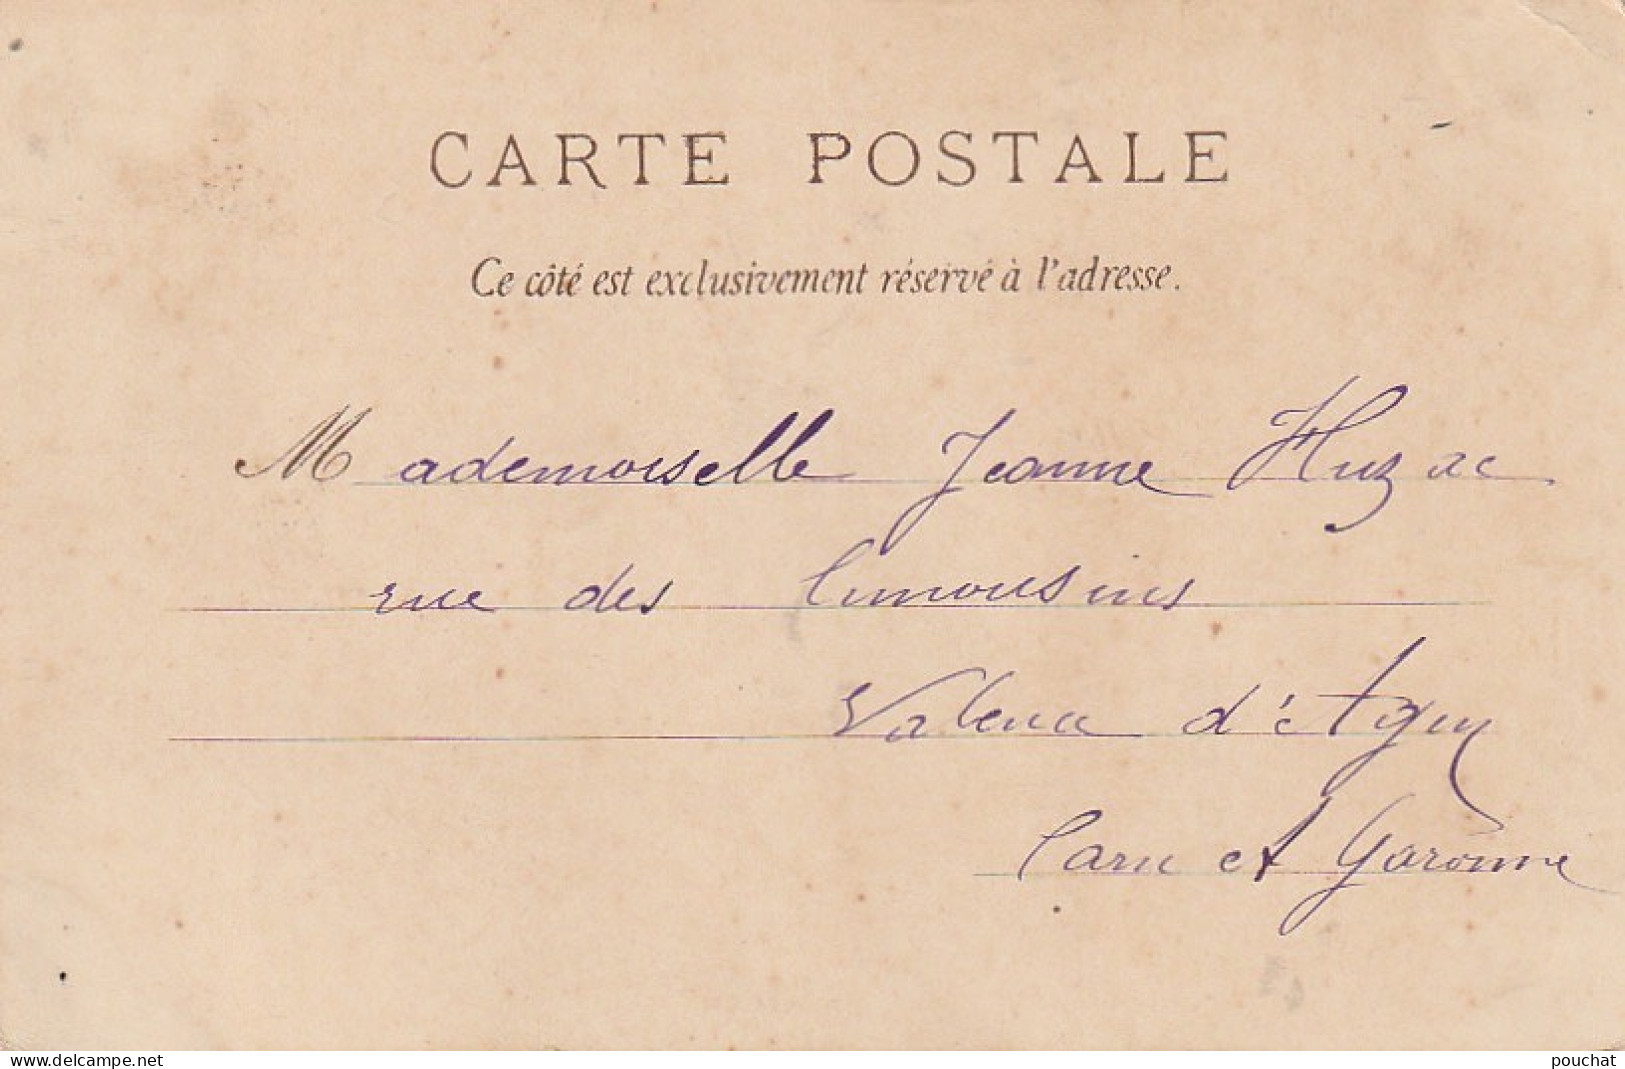 CARTE POSTALE
Ce côté est exclusivement réservé à l'adresse.
Mademoiselle Jeanne Huzac
rue des limousins
Valence d'Agen
Tarn et Garonne
www.delcampe.net
pouchat